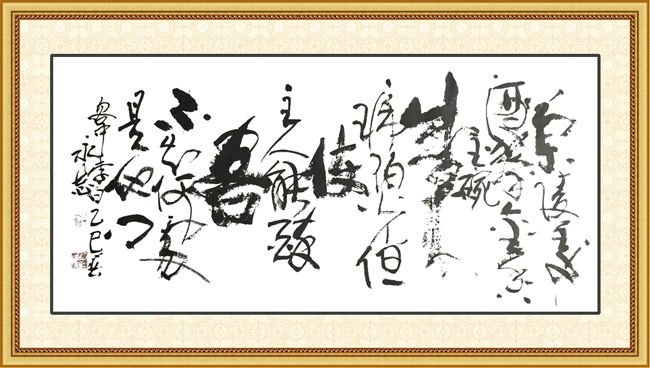 兰陵美
酒郁金香
玉碗
盛来
琥珀光但
使
主人能醉
客
不知何处
是他乡
乙巳